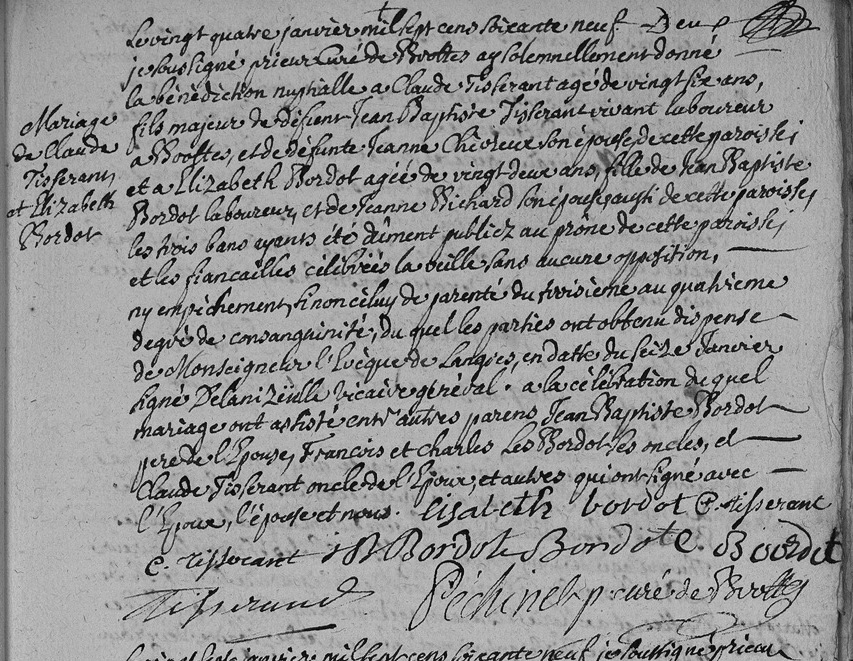 Mariage
de Claude
Tisserant,
et Elizabeth
Bordot
Le vingt quatre janvier mil sept cens soixante neuf.
je soussigné prieur curé de Brottes ay solemnellement donné
la bénédiction nuptialle a Claude Tisserant agé de vingt six ans,
fils majeur de défient Jean Baptiste Tisserant vivant laboureur
a Brottes, et de défunte Jeanne son épouse, de cette paroisse;
et a Elizabeth Bordot agée de vingt deux ans, fille de Jean Baptiste
Bordot laboureur, et de Jeanne Richard son épouse aussi de cette paroisse;
les trois bans ayants été dûment publiez au prône de cette paroisse;
et les fiancailles célébrées la veille, sans aucune opposition,
ny empêchement, sinon celuy de parenté du troisième au quatrieme
degré de consanguinité, du quel les parties ont obtenu dispense
de Monseigneur l'Evêque de Langres, en datte du seize Janvier
signé vicaire général. a la célébration duquel
mariage ont assisté entr'autres parens Jean Baptiste Bordot
pere de l'Epouse, Francois et Charles Les Bordot ses oncles, et
Claude Tisserant oncle de l'Epoux, et autres qui ont signé avec
l'Epoux, l'épouse et nous. Elisabeth bordot C. tisserant
C. tisserant JB Bordot Bordot C. Bordot
Tisserand Péchinet p. curé de Brottes
Le vingt sept janvier mil sept cens soixante neuf je soussigné prieur